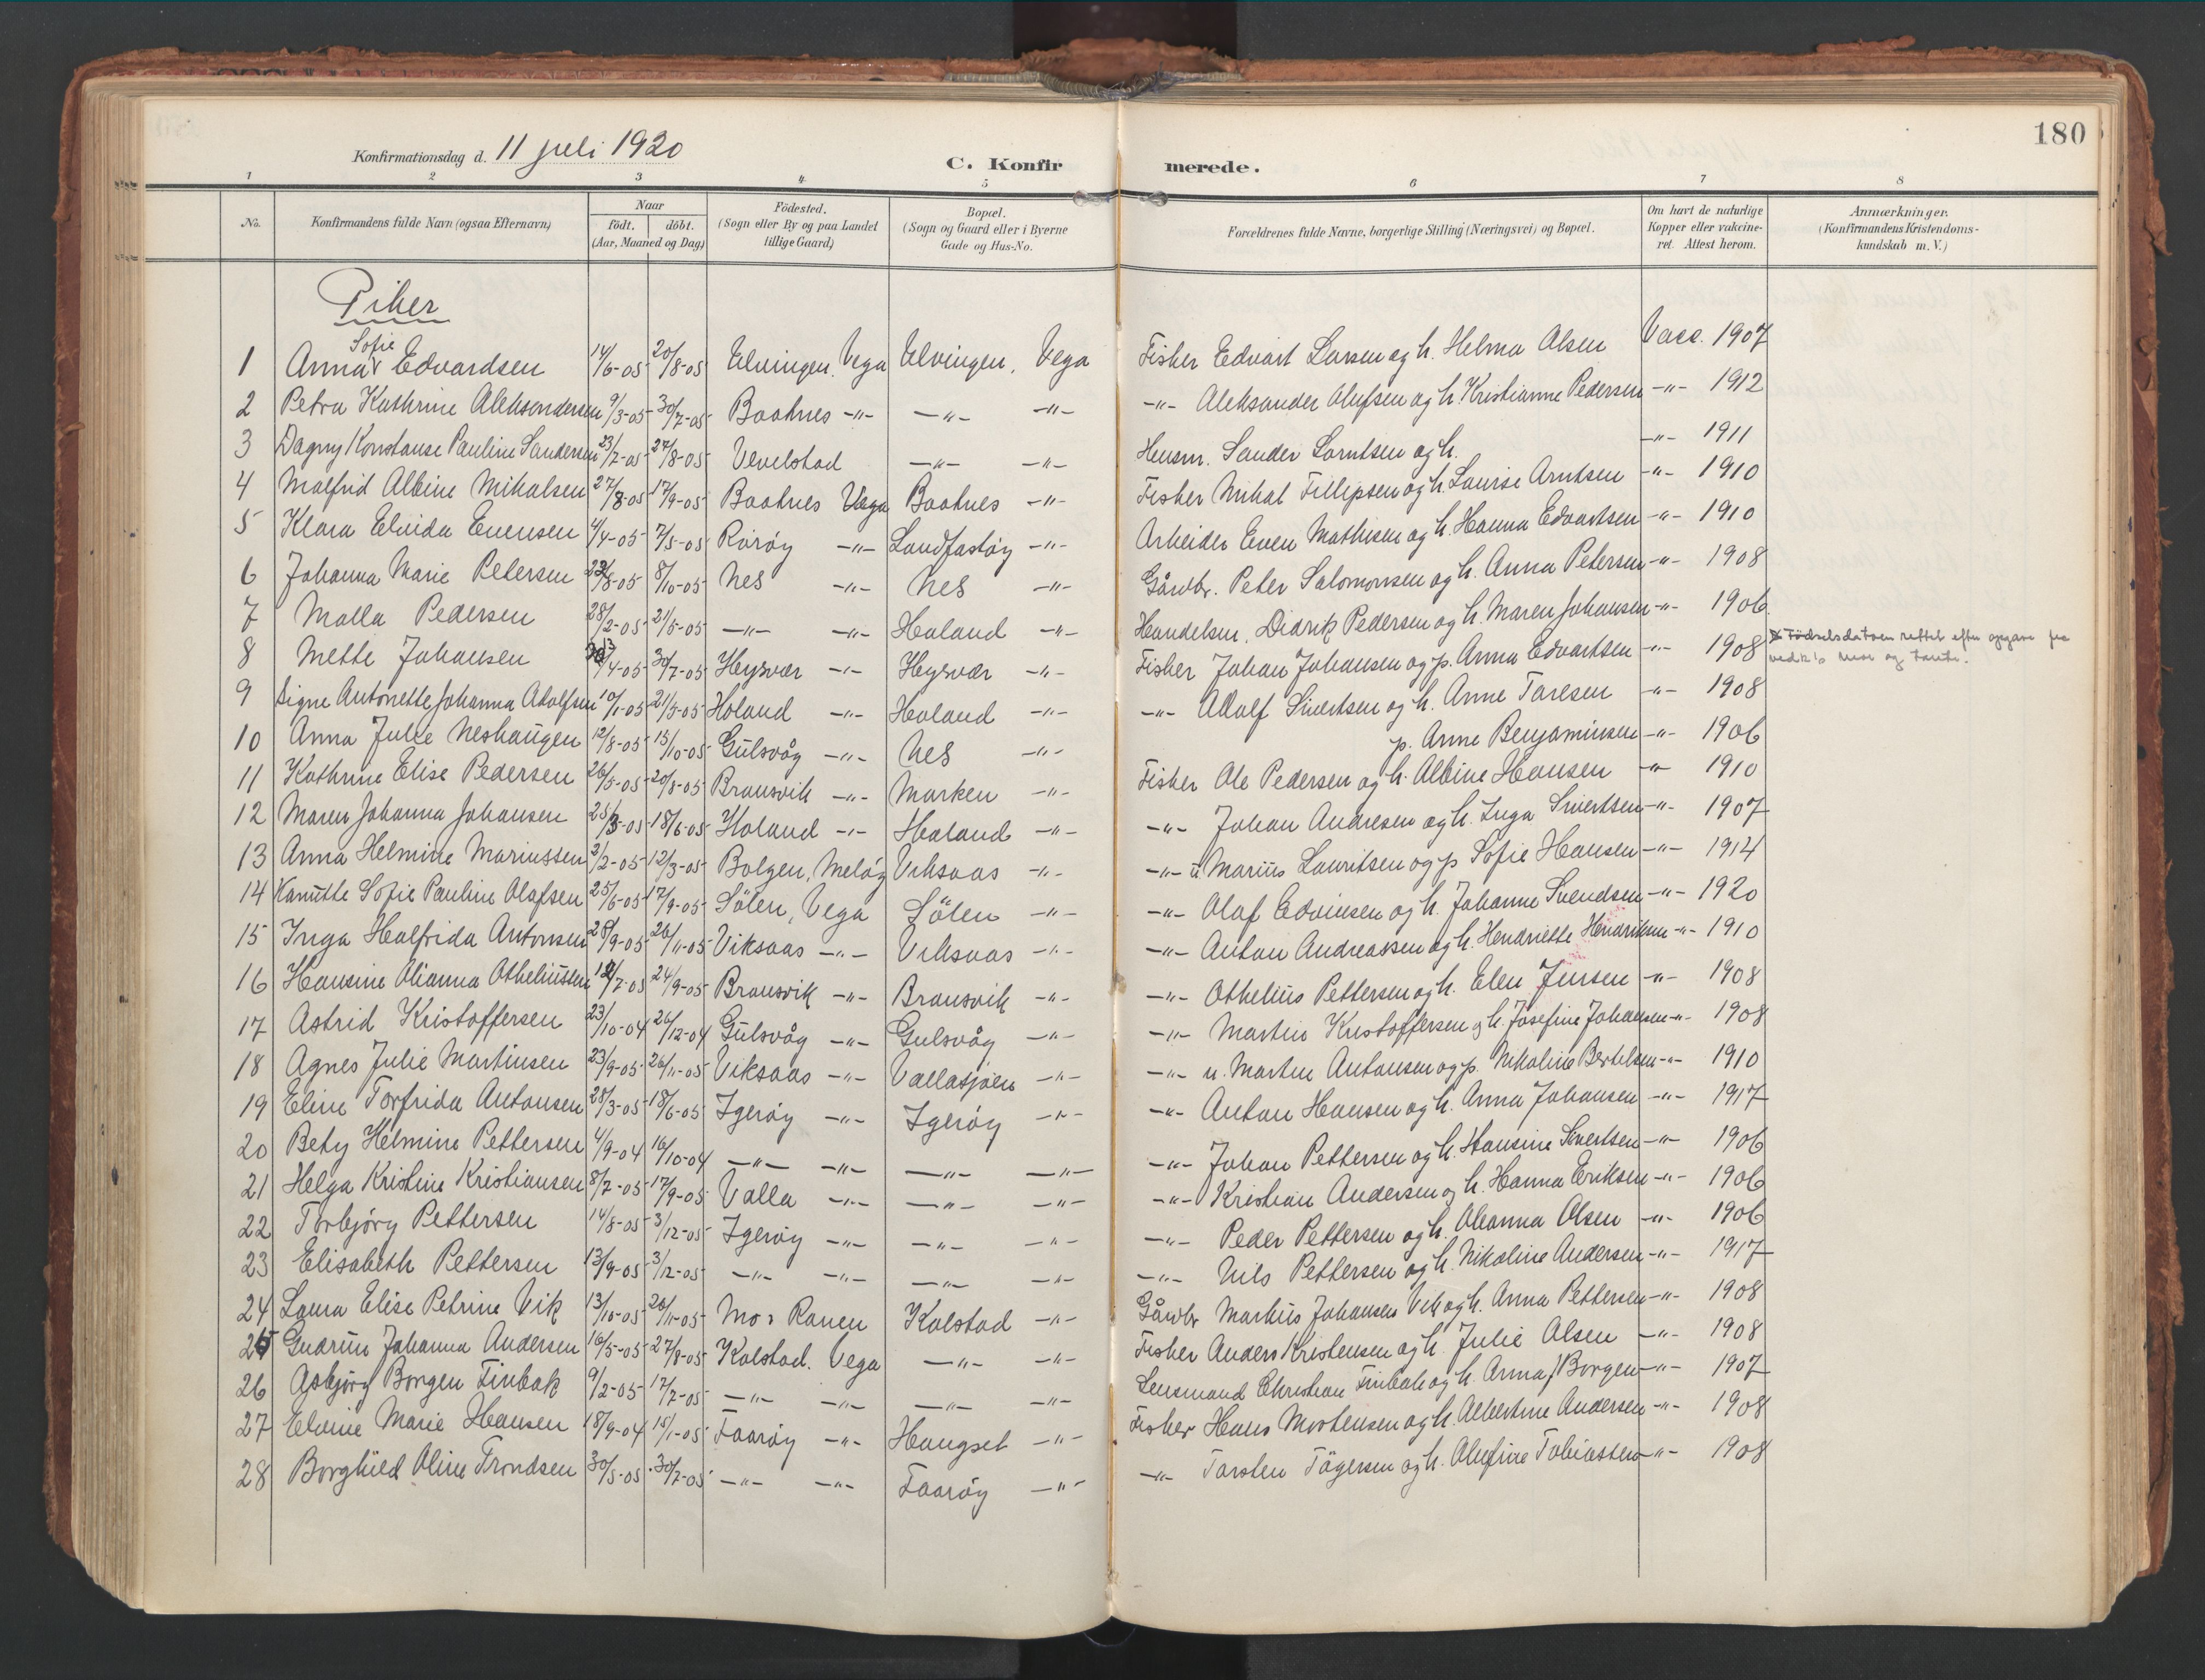 180
Konfirmationsdag d. 11 juli 1920
C. Konfirmerede.
1 2 3 4 5 6 7 8
No. Konfirmandens fulde Navn (ogsaa Efternavn) Naar födt. döbt. (Aar, Maaned og Dag) Födested. (Sogn eller By og paa Landet tillige Gaard) Bopæl. (Sogn og Gaard eller i Byerne Gade og Hus-No. Forældrenes fulde Navne, borgerlige Stilling (Næringsvei) og Bopæl. Om havt de naturlige Kopper eller vakcineret. Attest herom. Anmærkninger. (Konfirmandens Kristendomskundskab m. V.)
Piker
1 Anna Sofie Edvardsen 14/6-05 20/8-05 Elvingen, Vega Elvingen, Vega Fisker Edvart Larsen og h. Helma Olsen Vacc. 1907
2 Petra Kathrine Aleksandersen 9/3-05 30/7-05 Baaknes -"- -"- -"- -"- Aleksander Olufsen og h. Kristianne Pedersen -"- 1912
3 Dagny Konstanse Pauline Sandersen 23/7-05 27/8-05 Vevelstad -"- -"- Husm. Sander Larntsen og h. -"- 1911
4 Malfrid Albine Mikalsen 27/8-05 17/9-05 Baaknes Vega Baaknes -"- Fisker Mikal Fillipsen og h. Lovise Arntsen -"- 1910
5 Klara Elvida Evensen 4/4-05 7/5-05 Rörøy -"- Landfastøy -"- Arbeider Even Mathisen og h. Hanna Edvartsen -"- 1910
6 Johanna Marie Petersen 23/8-05 8/10-05 Nes -"- Nes -"- Gårdbr. Peter Salomonsen og h. Anna Petersen -"- 1908
7 Malla Pedersen 28/2-05 21/5-05 -"- -"- Holand -"- Handelsm. Didrik Pedersen og h. Maren Johansen -"- 1906
8 Mette Johansen /4-05 30/7-05 Hysvær -"- Hysvær -"- Fisker Johan Johansen og p. Anna Edvartsen -"- 1908 Födselsdatoen rettet efter opgave fra vedk's mor og tante.
9 Signe Antonette Johanna Adolfsen 10/1-05 21/5-05 Holand -"- Holand -"- -"- Adolf Sivertsen og h. Anne Taresen -"- 1908
10 Anna Julie Neshaugen 12/8-05 15/10-05 Gulsvåg -"- Nes -"- p. Anne Benjaminsen -"- 1906
11 Kathrine Elise Pedersen 26/5-05 20/8-05 Bransvik -"- Marken -"- Fisker Ole Pedersen og h. Albine Hansen -"- 1910
12 Maren Johanna Johansen 25/3-05 18/6-05 Holand -"- Holand -"- -"- Johan Andresen og h. Inga Sivertsen -"- 1907
13 Anna Helmine Mariussen 2/2-05 12/3-05 Bolgen, Meløy Viksaas -"- -"- u. Marius Lauritsen og p Sofie Hansen -"- 1914
14 Hanutte Sofie Pauline Olafsen 25/6-05 17/9-05 Sölen, Vega Sölen -"- -"- Olaf Edvinsen og h. Johanne Svendsen -"- 1920
15 Inga Halfrida Antonsen 28/9-05 26/11-05 Viksaas -"- Viksaas -"- -"- Anton Andreassen og h. Hendriette Hendriksen -"- 1910
16 Hansine Olianna Otheliussen /7-05 24/9-05 Bransvik -"- Bransvik -"- -"- Othelius Pettersen og h. Elen Jensen -"- 1908
17 Astrid Kristoffersen 23/10-04 26/12-04 Gulsvåg -"- Gulsvåg -"- -"- Martin Kristoffersen og h. Josefine Johansen -"- 1908
18 Agnes Julie Martinsen 23/9-05 26/11-05 Viksaas -"- Vallasjöen -"- -"- u. Martin Antonsen og p. Nikoline Bertelsen -"- 1910
19 Eline Torfrida Antonsen 28/3-05 18/6-05 Igerøy -"- Igerøy -"- -"- Anton Hansen og h. Anna Johansen -"- 1917
20 Bety Helmine Pettersen 4/9-04 16/10-04 -"- -"- -"- -"- -"- Johan Pettersen og h. Hansine Sivertsen -"- 1906
21 Helga Kristine Kristiansen 8/7-05 17/9-05 Valla -"- -"- -"- -"- Kristian Andersen og h. Hanna Eriksen -"- 1906
22 Torbjørg Pettersen 14/8-05 3/12-05 Igerøy -"- -"- -"- -"- Peder Pettersen og h. Oleanna Olsen -"- 1906
23 Elisabeth Pettersen 13/9-05 3/12-05 -"- -"- -"- -"- -"- Nils Pettersen og h. Nikoline Andersen -"- 1917
24 Laura Elise Petrine Vik 13/10-05 26/11-05 Mo i Ranen Kolstad -"- Gårdbr Markus Johansen Vik og h. Anna Pettersen -"- 1908
25 Gudrun Johanna Andersen 16/5-05 27/8-05 Kolstad. Vega -"- -"- Fisker Anders Kristensen og h. Julie Olsen -"- 1908
26 Asbjørg Borgen Finbak 9/2-05 17/7-05 -"- -"- -"- -"- Lensmand Christian Finbak og h. Anna J Borgen -"- 1907
27 Elvine Marie Hansen 18/9-04 15/1-05 Faarøy -"- Haugset -"- Fisker Hans Mortensen og h. Albertine Andersen -"- 1908
28 Borghild Oline Trondsen 30/5-05 30/7-05 -"- -"- Faarøy -"- -"- Torsten Tögersen og h. Olufine Tobiassen -"- 1908